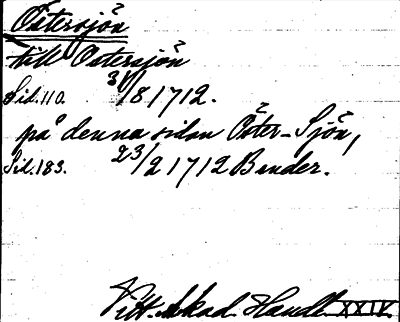 Östersjön
till Östersjön
Sid. 110. 31/8 1712.
på denna sidan Öster-Sjön,
Sid. 183. 23/2 1712 Bender.
Vitt. Akad. Handl. XXIV